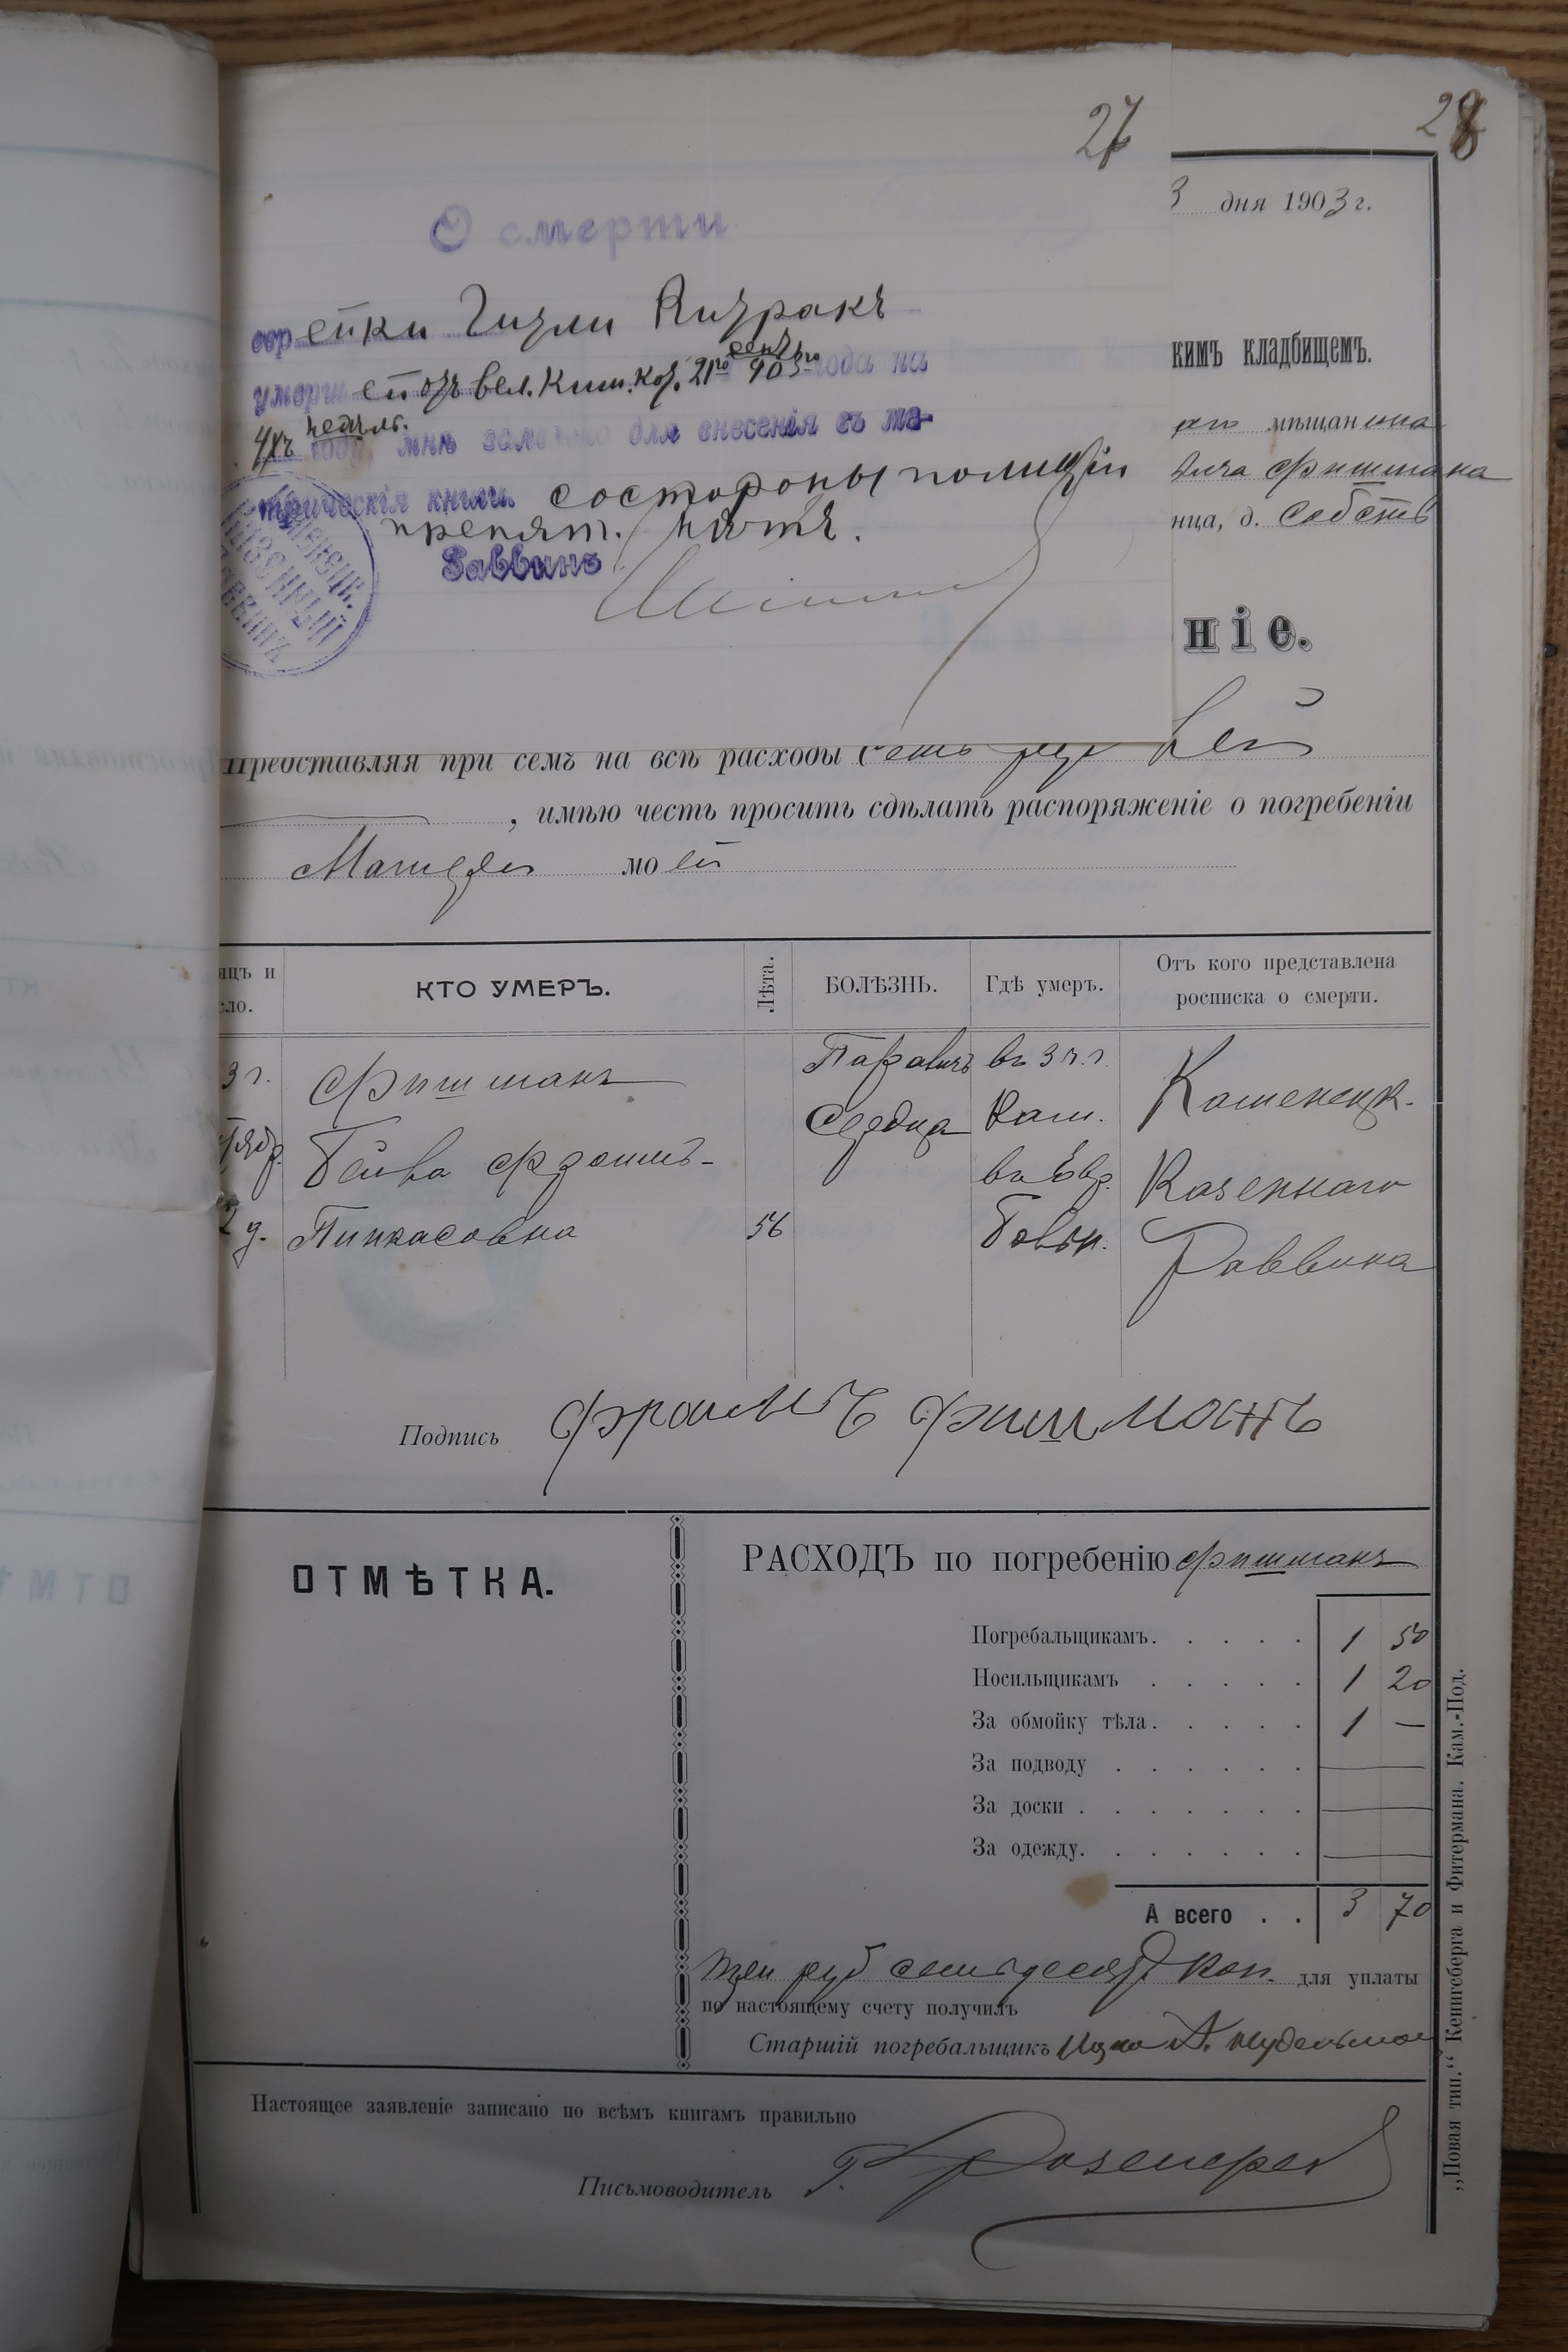 27
28
3 дня 1903 г.
О смерти
еврейки Гизли Кизракъ
умерш етъ отъ вел. Киш. кот. 21го сент. 903го года на
4хъ недѣль. году мнѣ заявлено для внесенія въ ме-
трическія книги. состороны полиціи
препят. нѣтъ.
Раввинъ
КАМЕНЕЦК. КАЗЕННЫЙ РАВВИНЪ
кимъ кладбищемъ.
мѣщанина
Фишмана
нца, д. Собств
ніе.
Представляя при семъ на всѣ расходы семь руб
, имѣю честь просить сдѣлать распоряженіе о погребеніи
моей
яцъ и
сло.
КТО УМЕРЪ.
Лѣта.
БОЛѢЗНЬ.
Гдѣ умеръ.
Отъ кого представлена
росписка о смерти.
3 г. Фишманъ Параличъ въ 3 ч. г. Каменецк.
тябр. Бейла Фроимъ- Сердца Кам. въ Евр. Казеннаго
2 д. Пинкасовна 56 Больн. Раввина
Подпись Фраимъ Фишманъ
ОТМѢТКА.
РАСХОДЪ по погребенію Фишманъ
Погребальщикамъ. 1 50
Носильщикамъ 1 20
За обмойку тѣла. 1 —
За подводу —
За доски —
За одежду. —
А всего 3 70
три руб семьдесят коп. для уплаты
по настоящему счету получилъ
Старшій погребальщикъ Ицко А.
Настоящее заявленіе записано по всѣмъ книгамъ правильно
Письмоводитель
„Новая тип.“ Кенигсберга и Фитермана. Кам.-Под.